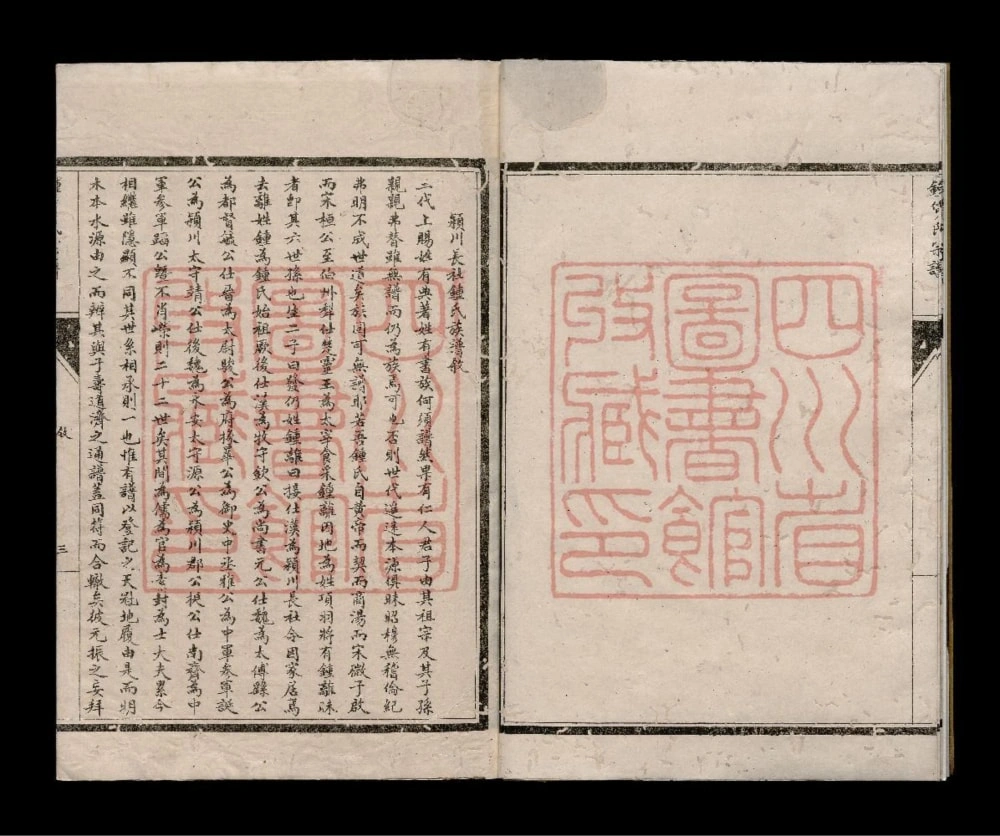 四川省
圖書館
收藏印
潁川長社鍾氏族譜敘
三代上賜姓有典著姓有書族何須譜然果有仁人君子由其祖宗及其子孫
親親弗替雖無譜而仍為族焉可也否則世代遞遠本源俱昧昭穆無稽倫紀
弗明不成世道矣族固可無譜耶若吾鍾氏自黃帝而契而商湯而宋微子啟
而宋桓公至伯州犁仕楚靈王為太宰食采鍾離因地為姓項羽將有鍾離昧
者即其六世孫也生二子曰發仍姓鍾離曰接仕漢為潁川長社令因家居焉
去離姓鍾為鍾氏始祖厥後仕漢為牧守欽公為尚書元公仕魏為太傅繇公
為都督毓公仕晉為太尉駿公為府掾華公為御史中丞雅公為中軍參軍誕
公為潁川太守靖公仕後魏為永安太守源公為潁川郡公提公仕南齊為中
軍參軍蹈公暨不肖嶸則二十二世矣其間為儒為官為袭封為士大夫累令
相繼雖隱顯不同其世系相承則一也惟有譜以登記之天冠地履由是而明
木本水源由之而辨其與子壽道濟之通譜蓋同符而合轍矣彼元振之妄拜
敘
三